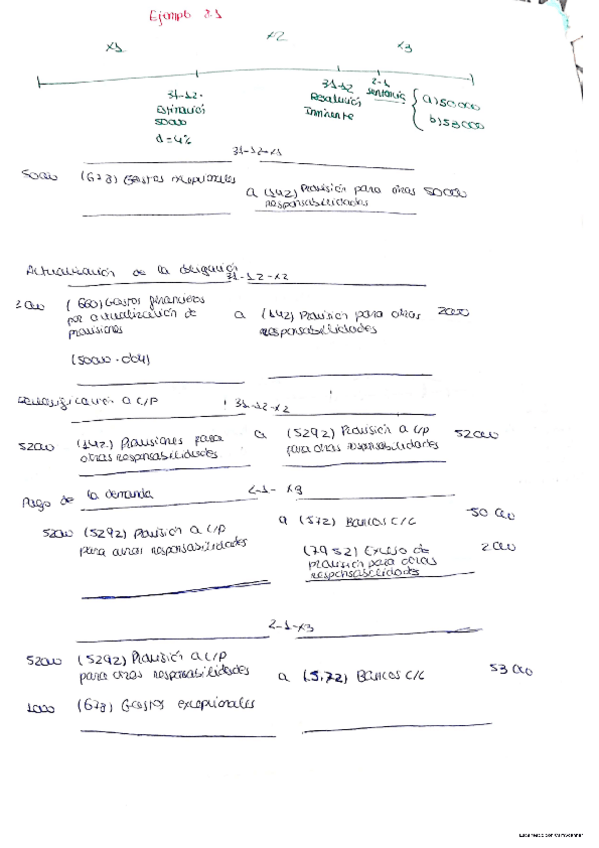 Ejemplo 2.1
X1 X2 X3
31-12- 31-12 2-1
Estimación Resolución sentencia a) 50000
50000 Inminente b) 53000
d = 4%
31-12-X1
50000 (678) Gastos excepcionales
a (142) Provisión para otras 50000
responsabilidades
Actualización de la obligación
31-12-X2
2000 (660) Gastos financieros a (142) Provisión para otras 2000
por actualización de responsabilidades
provisiones
(50000 · 0'04)
Reclasificación a C/P 31-12-X2
52000 (142) Provisiones para a (5292) Provisión a C/P 52000
otras responsabilidades para otras responsabilidades
Pago de la demanda 2-1-X3
52000 (5292) Provisión a C/P a (572) Bancos C/C 50000
para otras responsabilidades
(7952) Exceso de 2000
provisión para otras
responsabilidades
2-1-X3
52000 (5292) Provisión a C/P
para otras responsabilidades a (572) Bancos C/C 53000
1000 (678) Gastos excepcionales